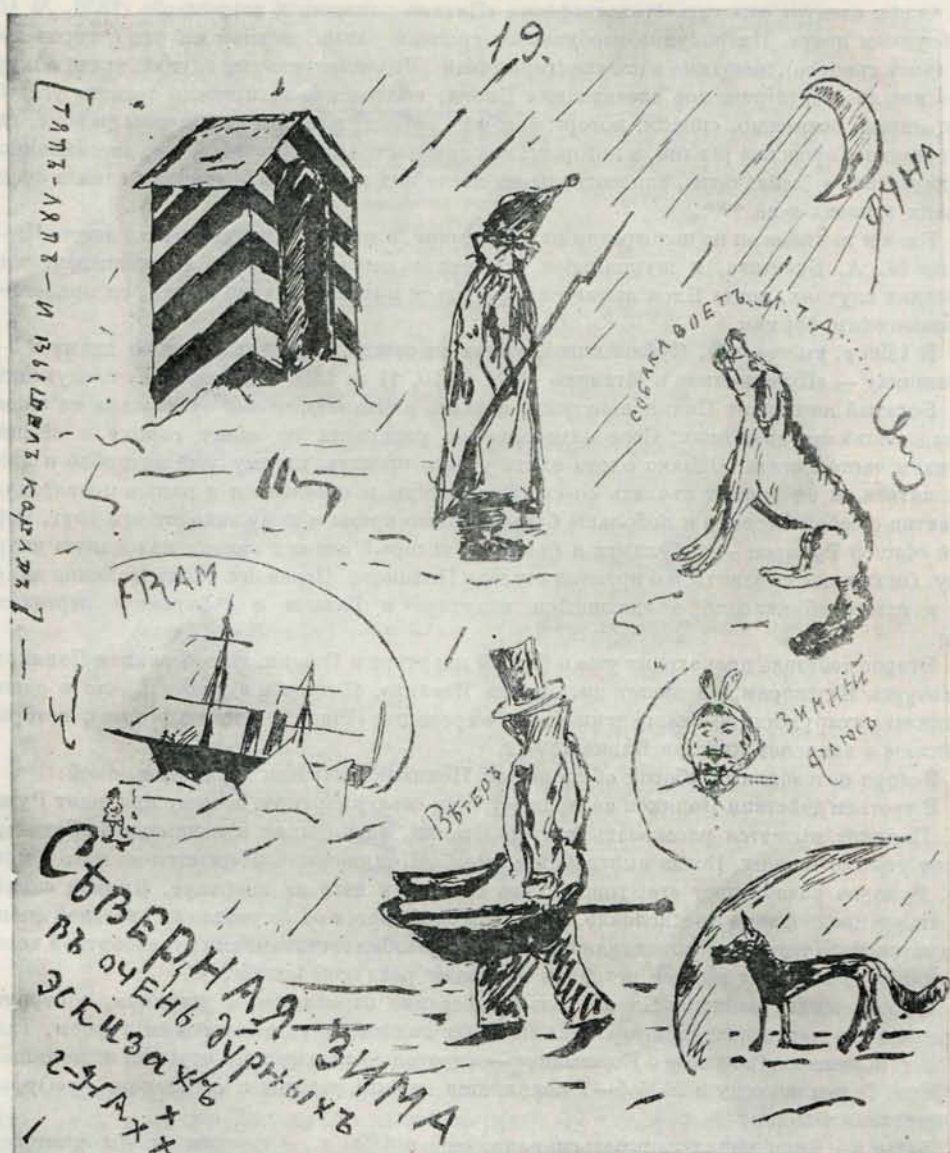 19.
ТЯПЪ-ЛЯПЪ – И ВЫШЕЛЪ КАРАПЬ!
ЛУНА
СОБАКА ВОЕТЪ И.Т.Д.
FRAM
ВѢТЕРЪ
ЗИМНІЙ
ФЛЮСЪ
СѢВЕРНАЯ ЗИМА
ВЪ ОЧЕНЬ ДУРНЫХЪ
ЭСКИЗАХЪ
Г-НА Х Х Х